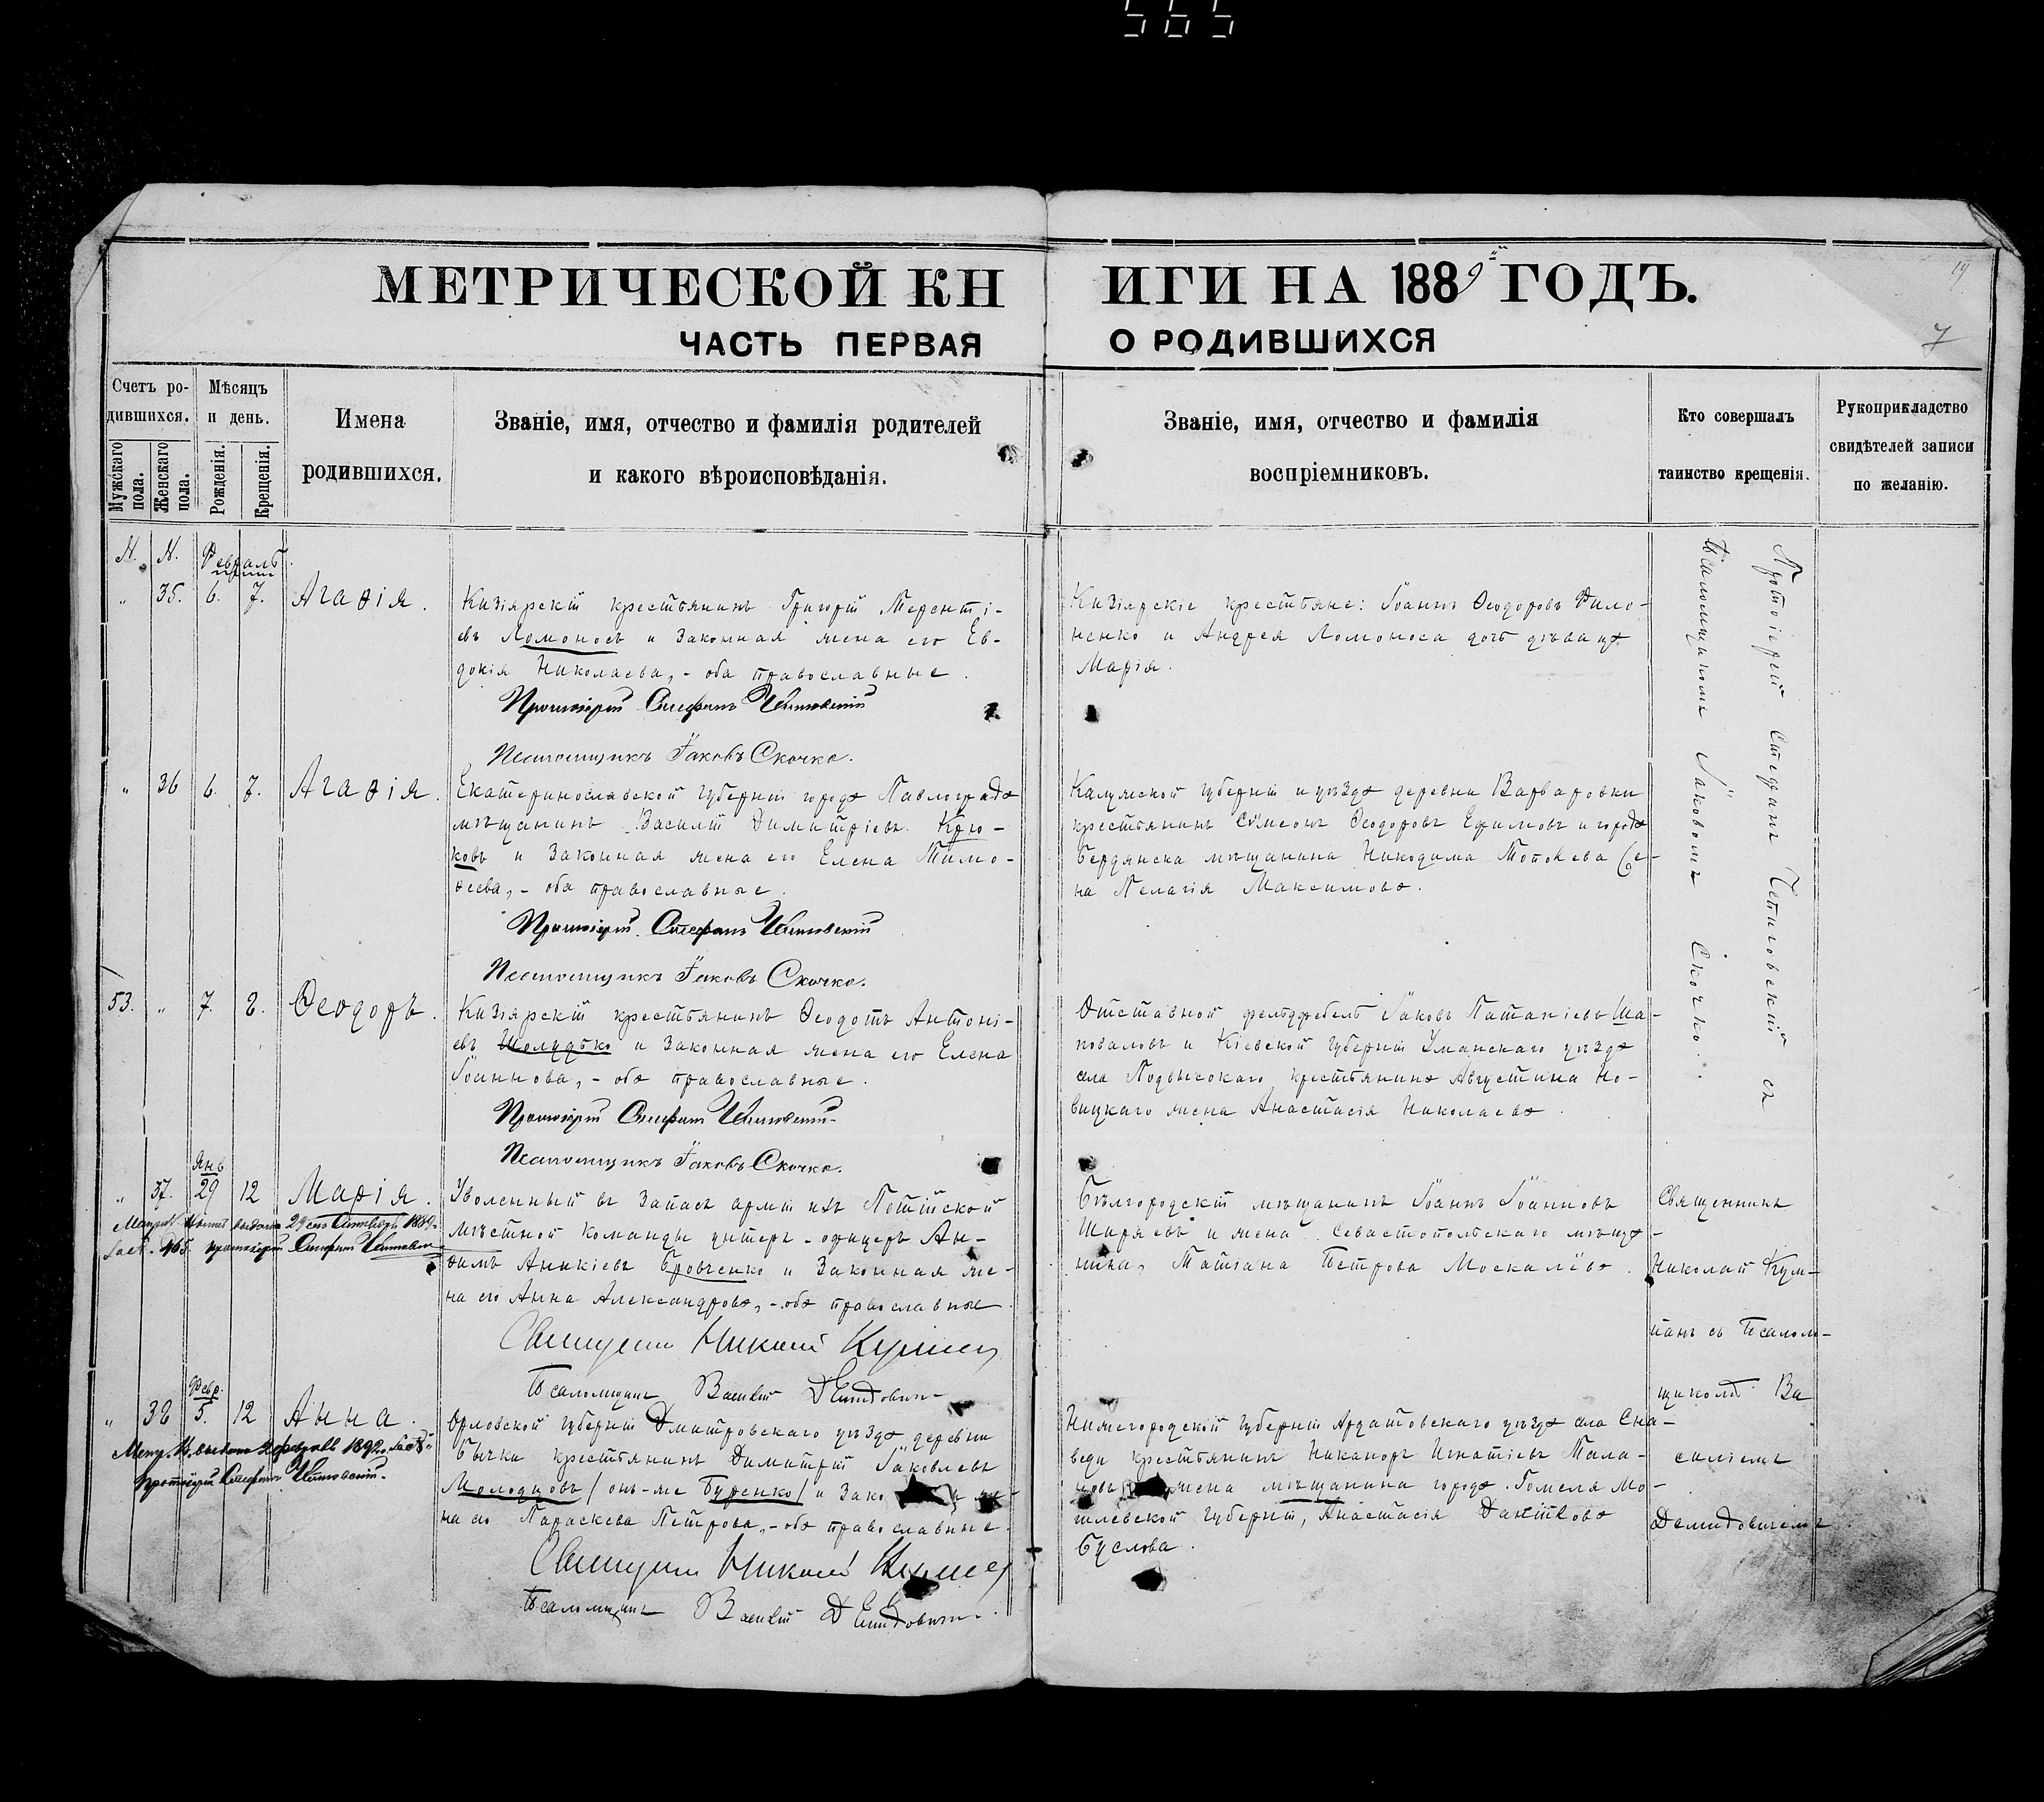 565
МЕТРИЧЕСКОЙ КНИГИ НА 1889й ГОДЪ.
19
7
ЧАСТЬ ПЕРВАЯ О РОДИВШИХСЯ
Счетъ ро-
дившихся.
Мужскаго пола.
Женскаго пола.
Мѣсяцъ
и день.
Рожденія.
Крещенія.
Имена
родившихся.
Званіе, имя, отчество и фамилія родителей
и какого вѣроисповѣданія.
Званіе, имя, отчество и фамилія
воспріемниковъ.
Кто совершалъ
таинство крещенія.
Рукоприкладство
свидѣтелей записи
по желанію.
N. N. Февраль
„ 35. 6. 7. Агаѳія.
Кизіярскій крестьянинъ Григорій Теренті-
евъ Ломоносъ и законная жена его Ев-
докія Николаева, - оба православные.
Протоіерей Стефанъ Чепиговскій
Псаломщикъ Іаковъ Скочко.
Кизіярскіе крестьяне: Іоаннъ Ѳеодоровъ Фило-
ненко и Андрея Ломоноса дочь дѣвица
Марія.
Протоіерей Стефанъ Чепиговскій съ
Псаломщикомъ Іаковомъ Скочко.
„ 36 6. 7. Агаѳія.
Екатеринославской губерніи города Павлограда
мѣщанинъ Василій Димитріевъ Крю-
ковъ и законная жена его Елена Тимо-
ѳеева, - оба православные.
Протоіерей Стефанъ Чепиговскій
Псаломщикъ Іаковъ Скочко.
Калужской губерніи и уѣзда деревни Варваровки
крестьянинъ Сѵмеонъ Ѳеодоровъ Ефимовъ и города
Бердянска мѣщанина Никодима
на Пелагія Максимова.
53. „ 7. 8. Ѳеодоръ.
Кизіярскій крестьянинъ Ѳеодотъ Антоні-
евъ Шолудько и законная жена его Елена
Іоаннова, - оба православные.
Протоіерей Стефанъ Чепиговскій
Псаломщикъ Іаковъ Скочко.
Отставной фельдфебель Іаковъ Ша-
поваловъ и Кіевской губерніи Уманскаго уѣзда
села Подвысокаго крестьянина Августина Но-
вицкаго жена Анастасія Николаева.
Янв
„ 37. 29 12 Марія.
выдана 29 его Сентября 1889.
465. протоіерей Стефанъ Чепиговскій
Уволенный въ запасъ арміи изъ Потійской
мѣстной команды унтеръ-офицеръ Ан-
ѳимъ Аникіевъ Бровченко и законная же-
на его Анна Александрова, - оба православные.
Священникъ Николай
Псаломщикъ Василій Демидовичъ
Бѣлгородскій мѣщанинъ Іоаннъ Іоанновъ
Ширяевъ и жена Севастопольскаго мѣща-
нина, Татіана Петрова Москалёва.
Священникъ
Николай
съ Псалом-
щикомъ Ва
силіемъ
Демидовичемъ.
Февр.
„ 38 5. 12 Анна.
выдана 2 февраля 1892
протоіерей Стефанъ Чепиговскій.
Орловской губерніи Дмитровскаго уѣзда деревни
Бычки крестьянинъ Димитрій Іаковлевъ
Молодцовъ / онъ-же Буренко / и зако
на его Параскева Петрова, - оба православные.
Священникъ Николай
Псаломщикъ Василій Демидовичъ.
Нижегородской губерніи Ардатовскаго уѣзда села Сна-
веди крестьянинъ Никаноръ Игнатіевъ Тала-
новъ жена мѣщанина города Гомеля Мо-
гилевской губерніи, Анастасія
Буслова.